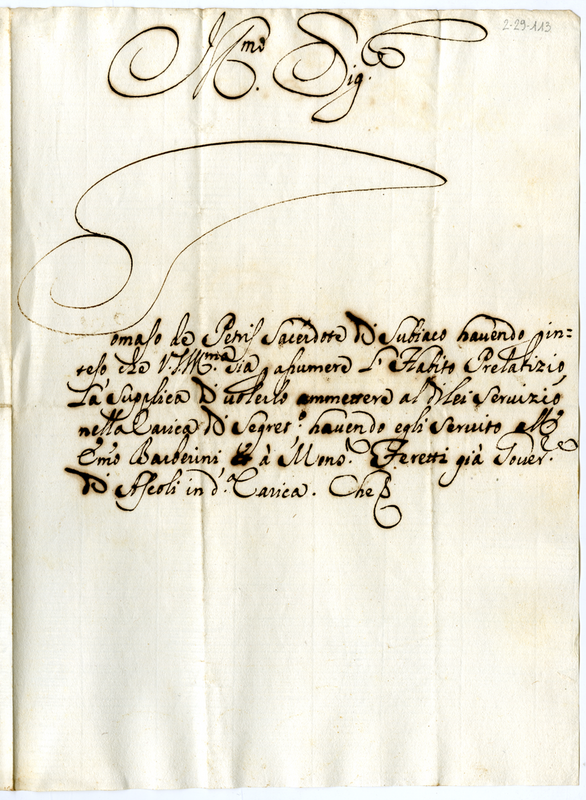 2-29-113
Ill.mo Sig.re
Tomaso de Petris Sacerdote di Subiaco havendo in=
teso che V.S. Ill.ma sia p assumere l'Habito Prelatizio,
La supplica di volerlo ammettere al di lei servizio
nella Carica di Segret.o havendo egli servito all'
Emo Barberini et à Mons.r Feretti già Gover.re
di Ascoli in d.a Carica. Che